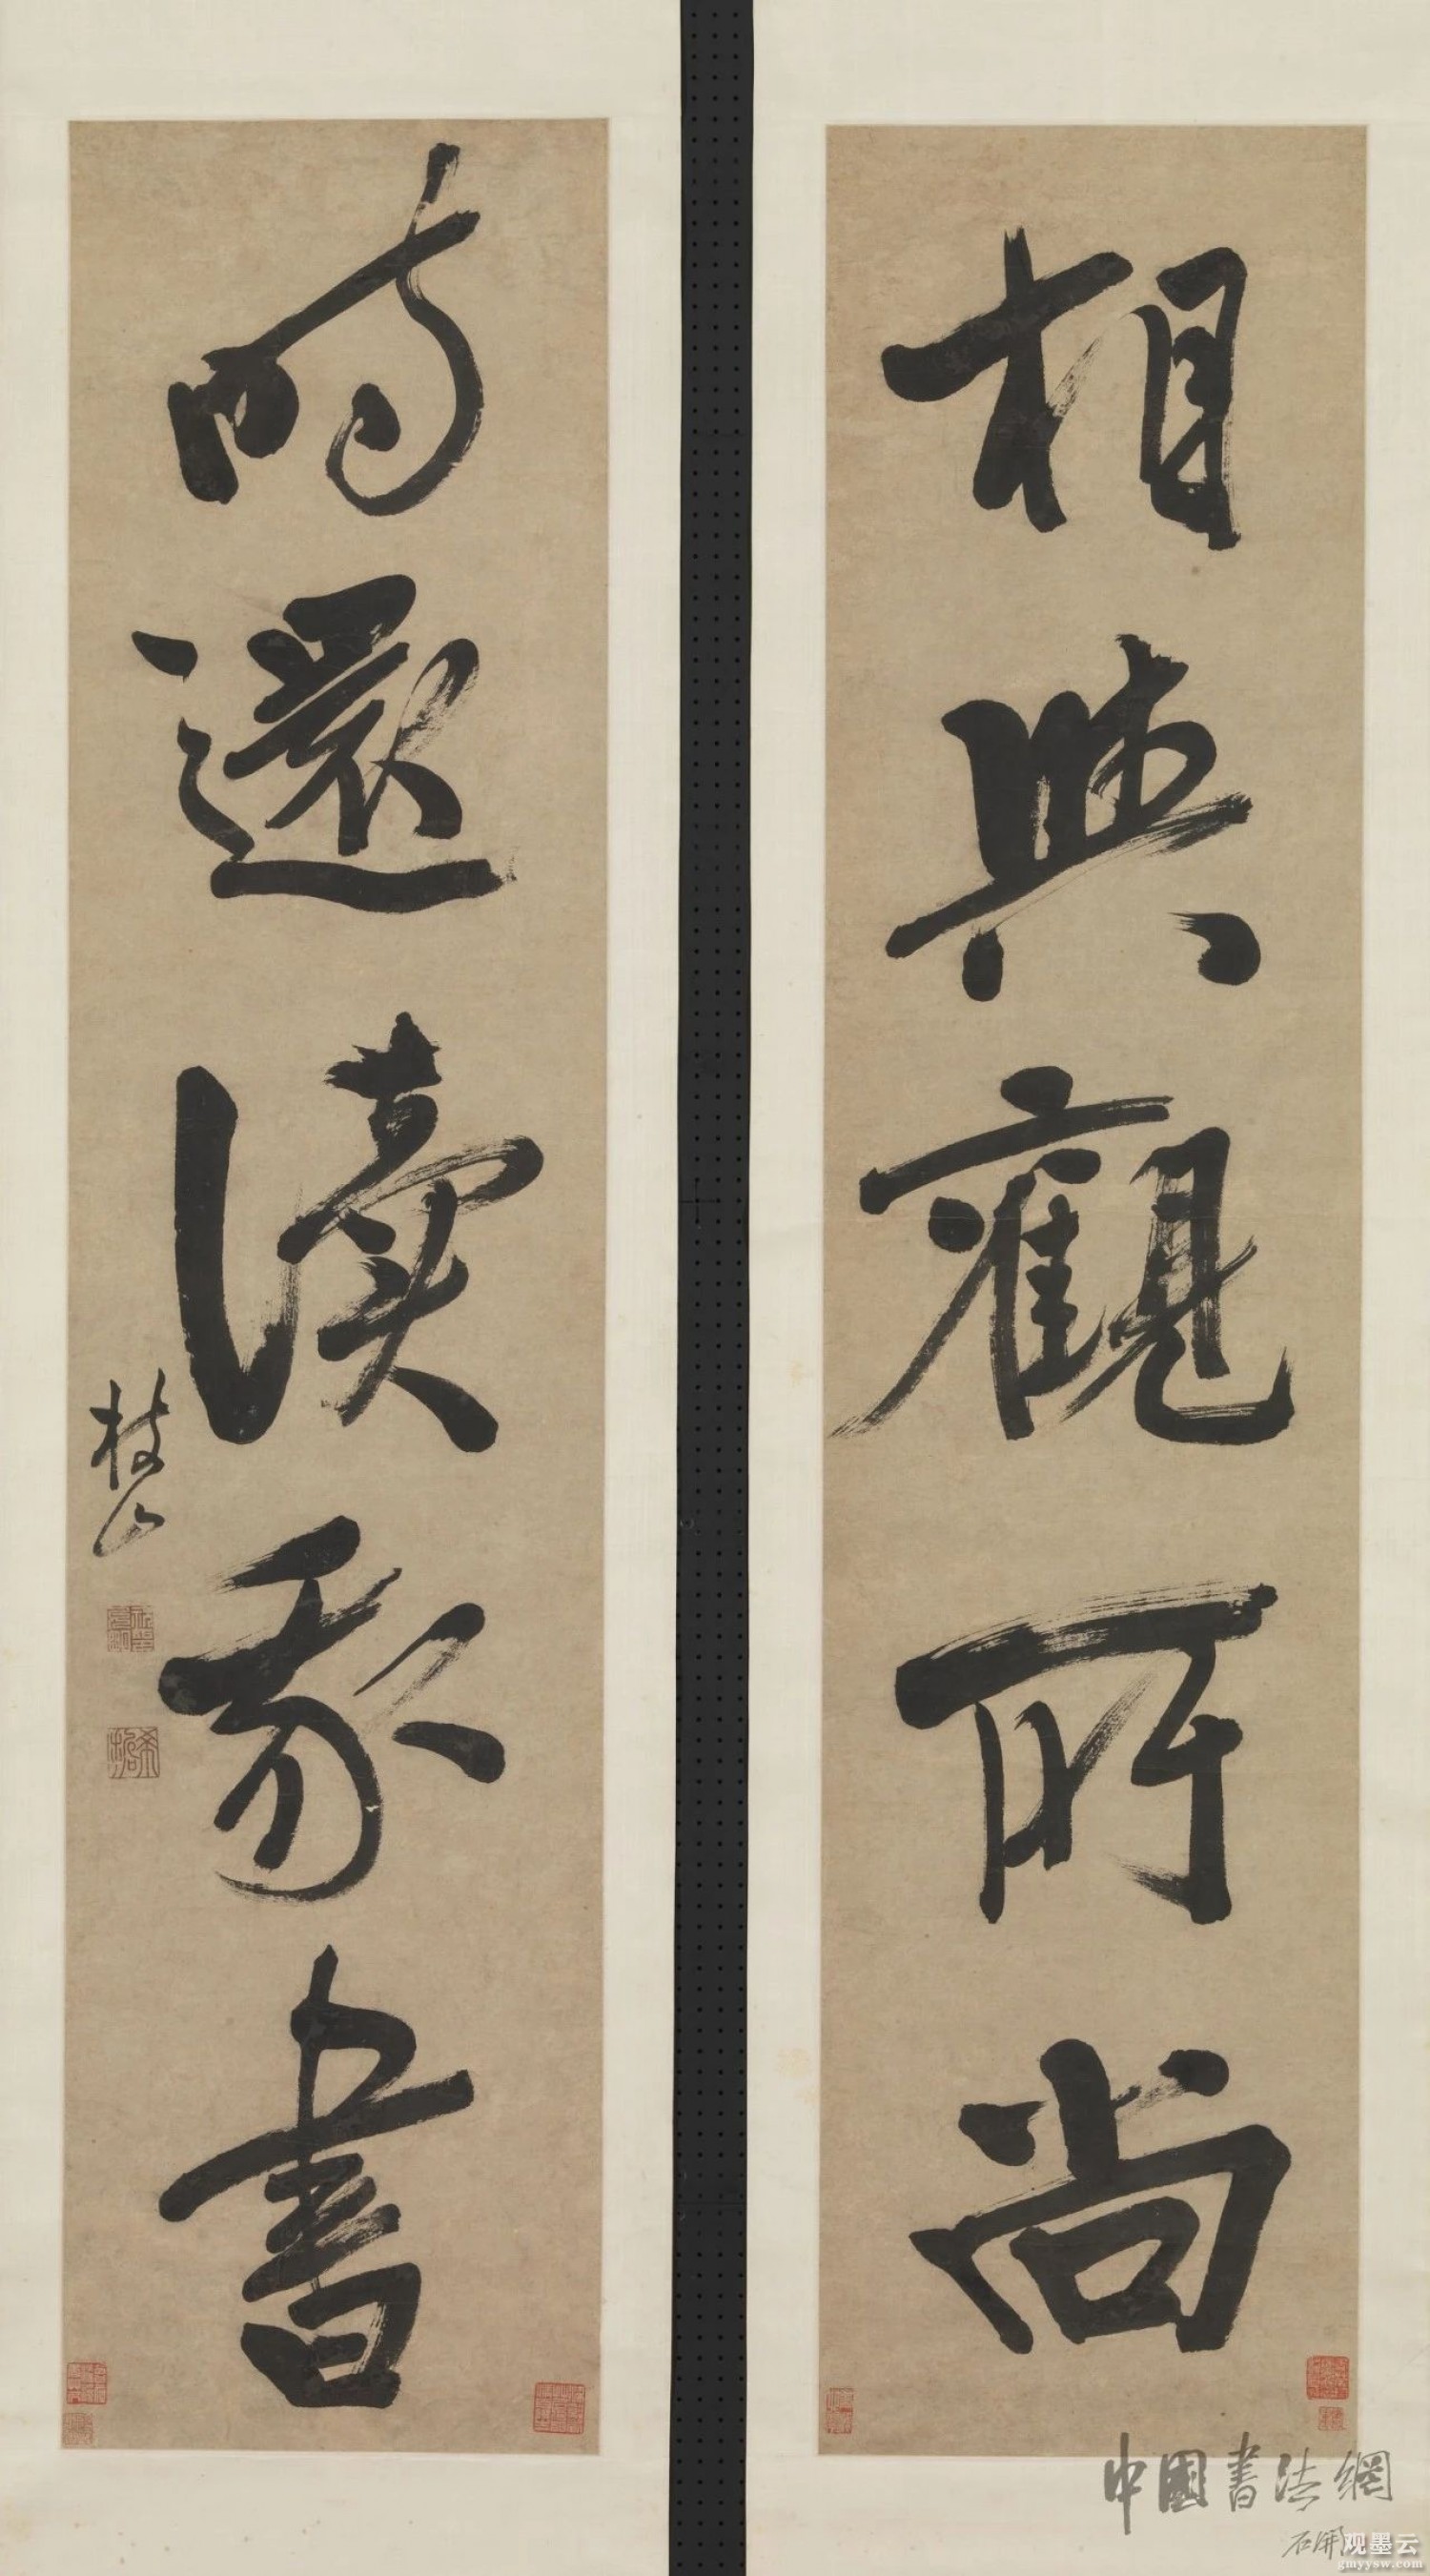 相與觀所尚
時還讀我書
枝山
中國書法網
石開
观墨云
gmyysw.com